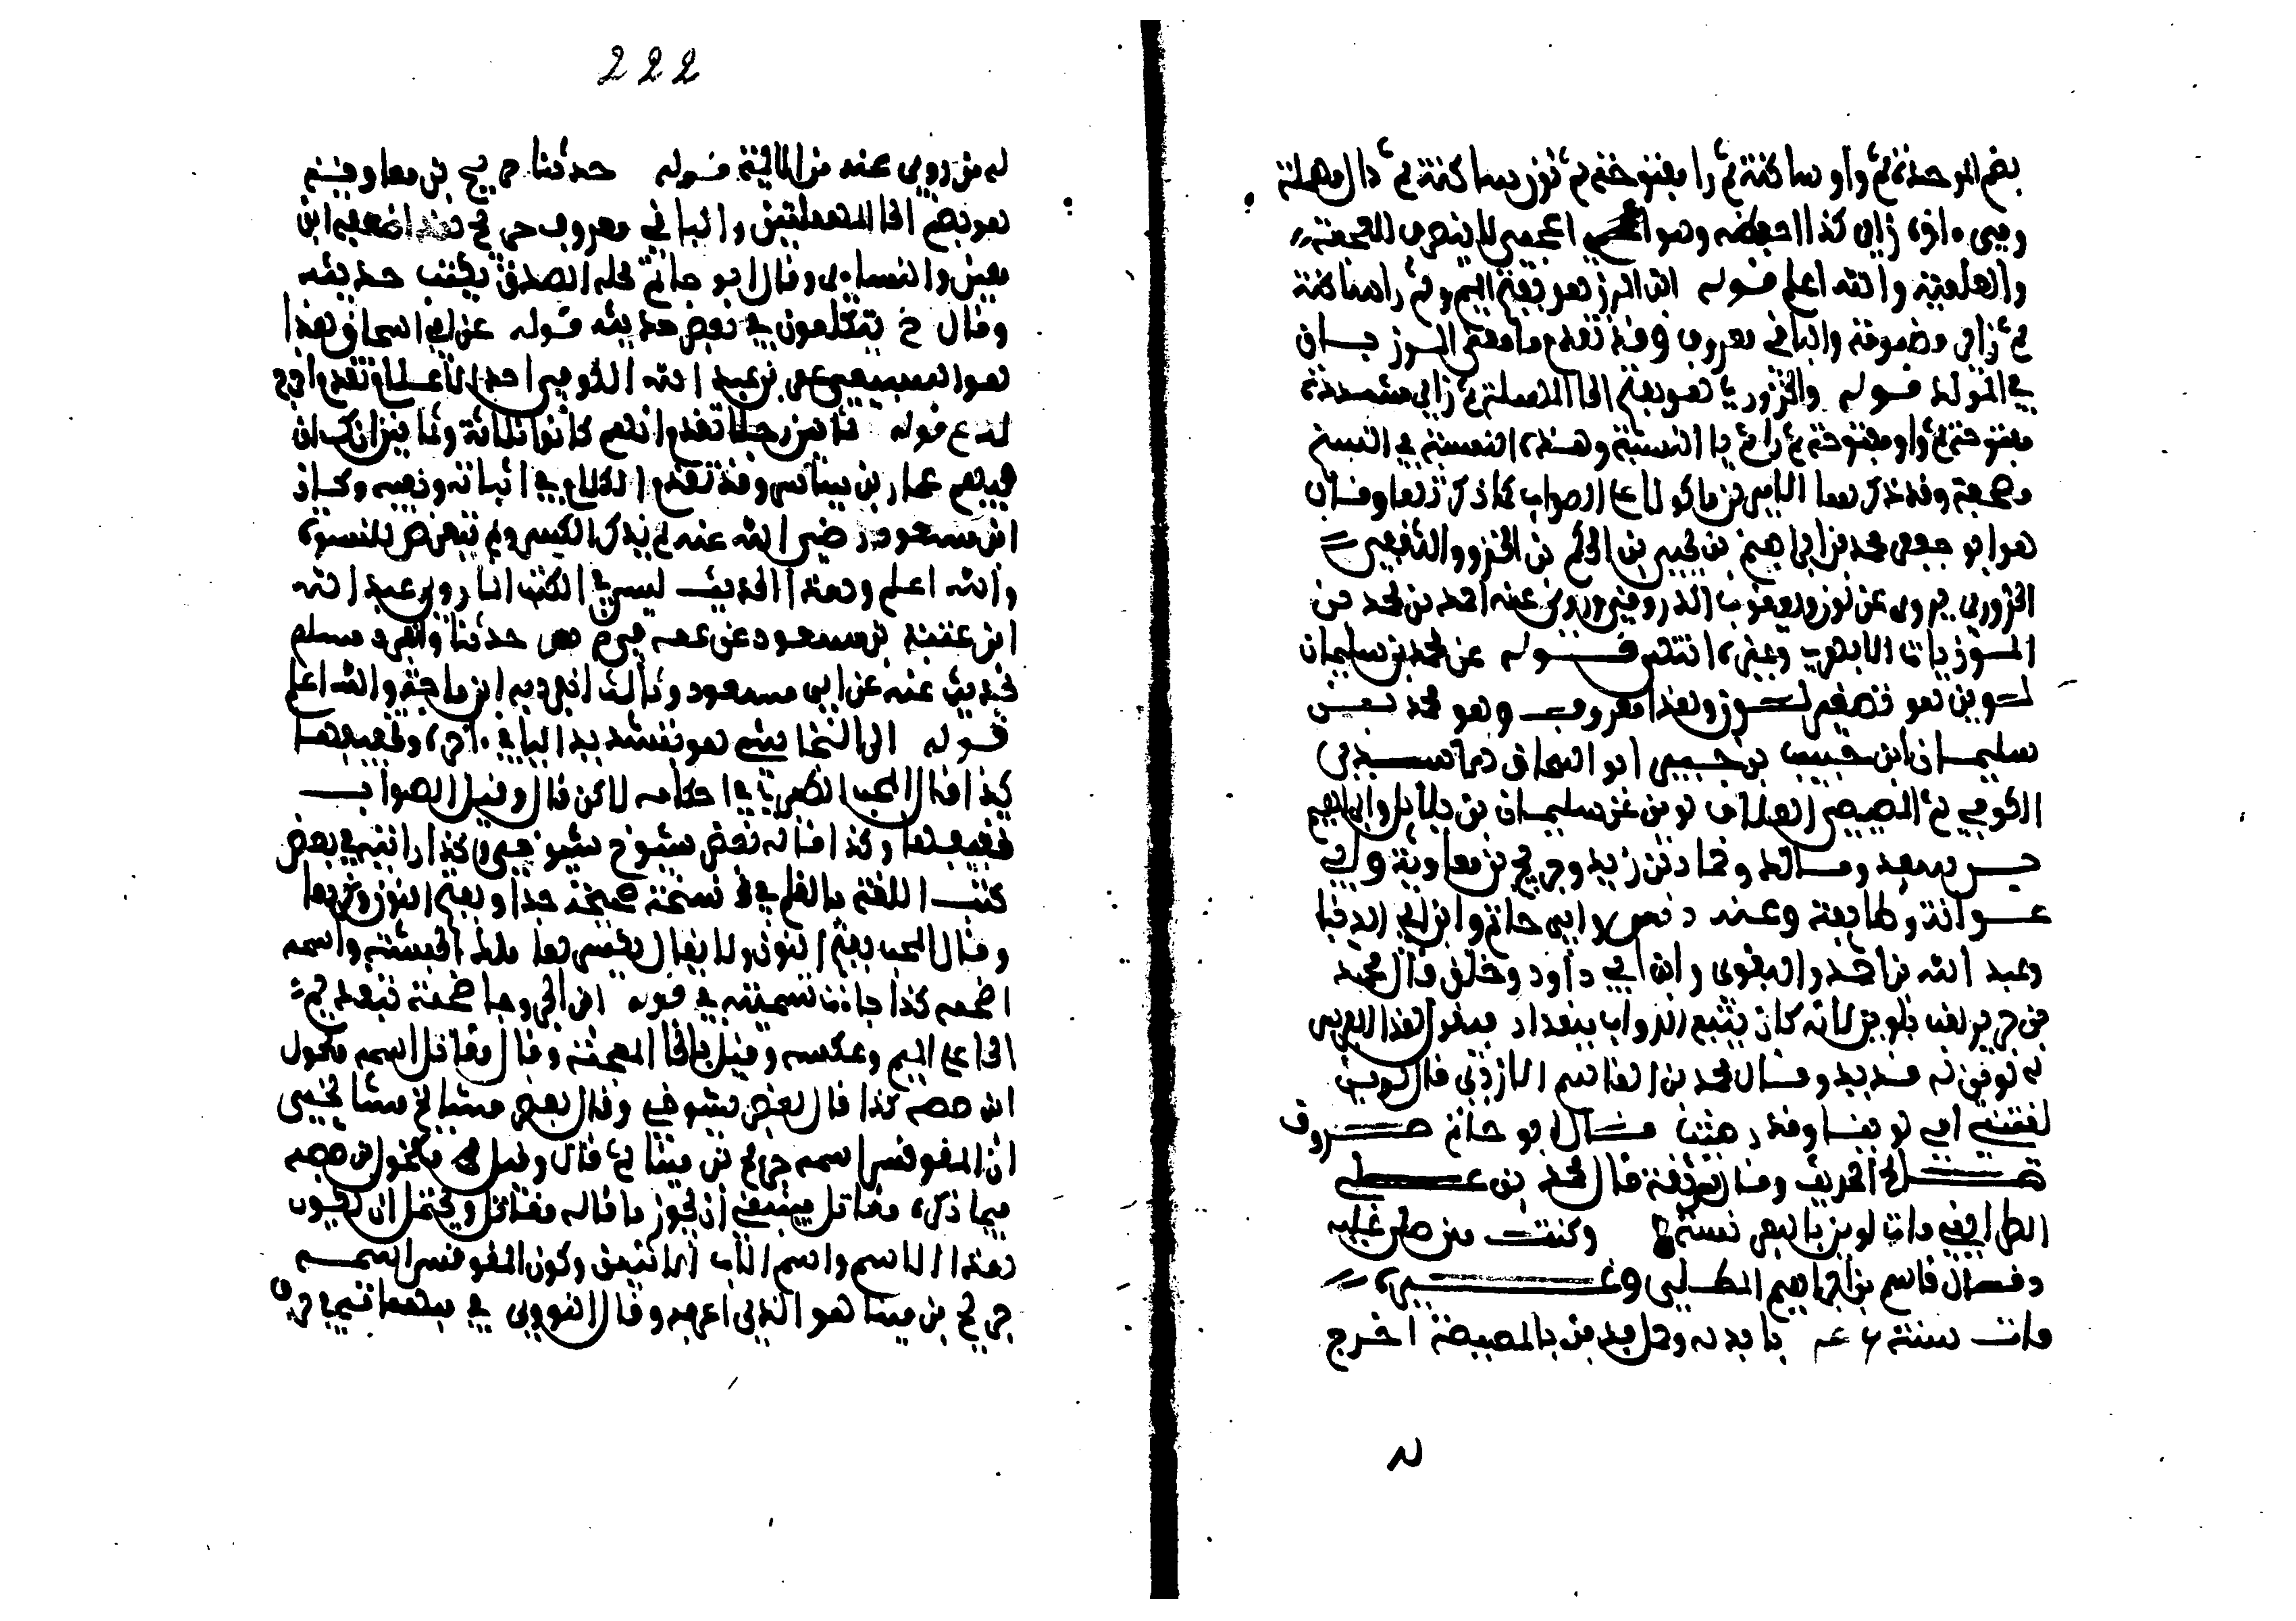 بضم الموحدة ثم واو ساكنة ثم را مفتوحة ثم نون ساكنة ثم دال مهملة
وفي اخره زاي كذا احفظه وهو اعجمي لا ينصرف للعجمة
والعلمية والله اعلم قوله ابن المرز هو بفتح الميم ثم را ساكنة
ثم زاي مضمومة والباقي معروف وقد تقدم ما معنى المرزبان
في المولد قوله والحزوري هو بفتح الحا المهملة ثم زاي مشددة
مفتوحة ثم واو مفتوحة ثم را ثم يا النسبة وهذه النسبة
وقد ذكرها الامير بن ماكولا على الصواب كما ذكرتها وقال
هو ابو جعفر محمد بن ابراهيم بن يحيى بن الحكم بن الحزور الثقفي
الحزوري يروي عن لوين ويعقوب الدورقي وروى عنه احمد بن محمد بن
المرزبان الابهري وغيره انتهى قوله عن محمد بن سليمان
لوين هو تصغير لون وهذا معروف وهو محمد بن
سليمان بن حبيب بن جبير ابو الاسدي
الكوفي ثم المصيصي العلاف لوين عن سليمان بن بلال وابراهيم
بن سعد ومالك وحماد بن زيد وحديج بن معاوية وابي
عوانة وطايفة وعنه د س وابي حاتم وابن ابي الدنيا
وعبد الله بن احمد والبغوي وابن ابي داود وخلق قال محمد
بن جرير لقب بلوين لانه كان يبيع الدواب ببغداد فيقول هذا الفرس
له لوين له قديد وقال محمد بن القاسم الازدي قال لوين
لقبتني امي لوينا وقد رضيت قال ابو حاتم
صالح الحديث وقال س ثقة قال محمد بن
الطرايفي مات لوين سنة وكنت فيمن صلى عليه
وقال قاسم بن ابراهيم الملطي وغيره
مات سنة وحمل فدفن بالمصيصة اخرج
222
له من روى عنه من الماية قوله حدثنا حديج بن معاوية
هو بضم الحا المهملة والباقي معروف حديج هذا ضعفه ابن
معين والنسايي وقال ابو حاتم محله الصدق يكتب حديثه
وقال خ يتكلمون في بعض حديثه قوله عن ابي اسحاق هذا
هو السبيعي عمرو بن عبد الله الكوفي احد الاعلام تقدم اخرج
له ع قوله ثمانين رجلا تقدم انهم كانوا ثلاثة وثمانين ان كان
فيهم عمار بن ياسر وقد تقدم الكلام في اثباته ونفيه وكان
ابن مسعود رضي الله عنه لم يذكر الكسر ولم يتعرض للنسوة
والله اعلم وهذا الحديث ليس في الكتب انما روى عبد الله
ابن عتبة بن مسعود عن عمه حدثنا وانفرد مسلم
بحديث عنه عن ابي مسعود وثالث انفرد به ابن ماجة والله اعلم
قوله الى النجاشي هو بتشديد اليا في اخره وتخفيفها
كذا قال المحب الطبري في احكامه لاكن قال وقيل الصواب
تخفيفها وكذا قاله بعض شيوخ شيوخي وكذا رايته في بعض
كتب اللغة بالقلم في نسخة صحيحة جدا وبفتح النون وكسرها
وقال المحب بفتح النون ولا يقال بكسرها ملك الحبشة واسمه
اصحمه كذا جات تسميته في قول ابن
الحا على الميم وعكسه وقيل بالخا المعجمة وقال مقاتل اسمه مكحول
ابن صصه كذا قال بعض شيوخي وقال بعض مشايخ مشايخي
ان المقوقس اسمه جريج بن مينا ثم قال وقيل مكحول بن صصه
فيما ذكره مقاتل فينبغي ان يجوز ما قاله مقاتل ويحتمل ان يكون
هذا الاسم واسم الاب اتفق وكون المقوقس اسمه
جريج بن مينا هو الذي اعرفه وقال النووي في